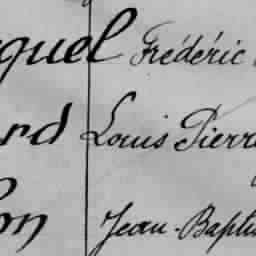 quel Frédéric
rd Louis Pierr
on Jean-Bapti